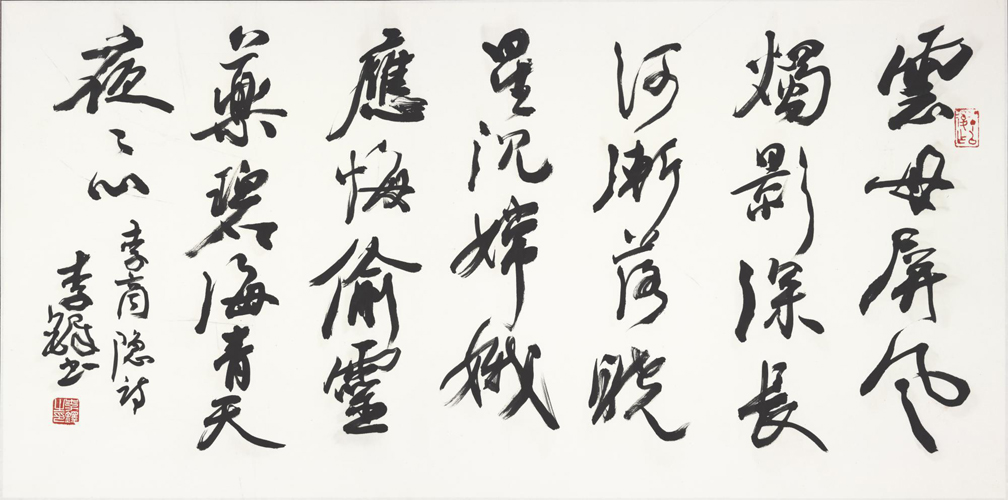 雲母屏風
燭影深長
河漸落曉
星沉嫦娥
應悔偷靈
藥碧海青天
夜〻心
李商隐詩
李鐸书